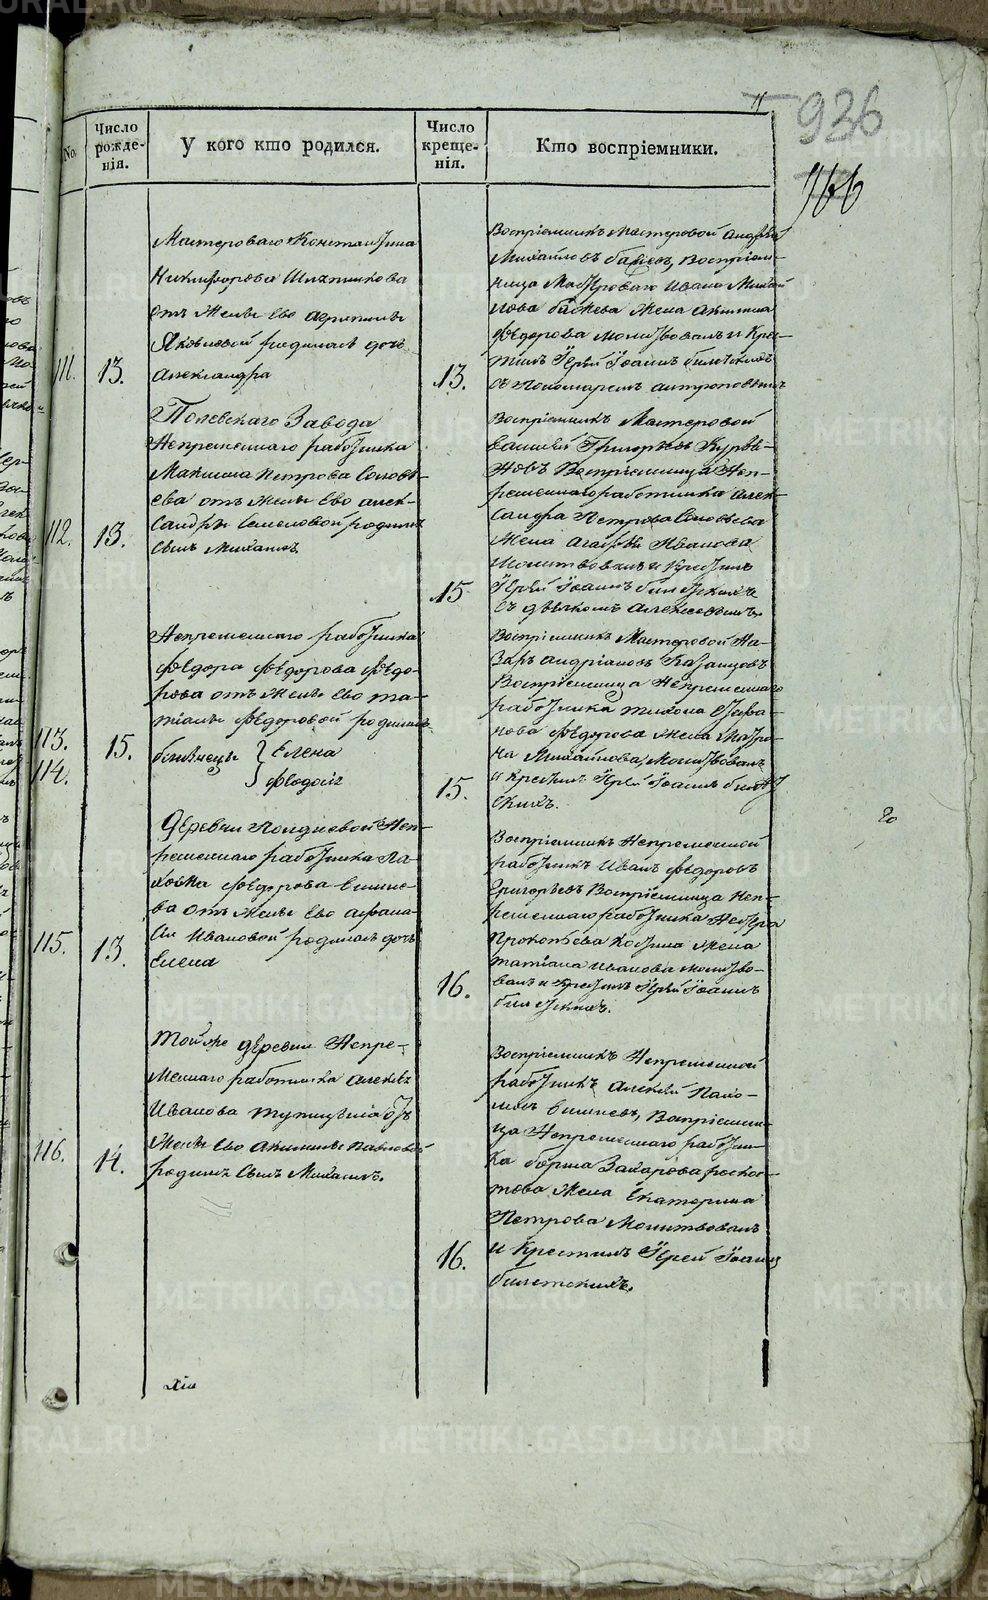 936
766
No.
Число рожде-нія.
У кого кто родился.
Число креще-нія.
Кто воспріемники.
111.
13.
Мастероваго Константина
Никифорова
отъ жены Его Агрипины
Яковлевой родилась дочь
Александра
13.
Воспріемникъ Мастеровой Андрей
Михайловъ Воспріем-
ница Мастероваго Ивана Михай
лова жена Акилина
Федорова молитвовалъ и Крес-
тилъ Іерей Іоаннъ
съ пономаремъ
112.
13.
Полевскаго Завода
Непременнаго работника
Максима Петрова Соловь-
ева отъ жены Его Алек-
сандры Семеновой родился
сынъ Михаилъ
15
Воспріемникъ Мастеровой
Григорьевъ
Воспріемница Неп-
ременнаго работника Алек-
сандра Петрова Соловьева
жена Агафья Иванова
Молитвовалъ и крестилъ
Іерей Іоаннъ
съ дьячкомъ Алексеевымъ
113.
114.
15.
Непременнаго работника
Федора Федорова Федо-
рова отъ жены Его Та-
тіаны Федоровой родились
близнецы Елена
Феодосій
15.
Воспріемникъ Мастеровой На-
заръ Андріановъ Казанцовъ
Воспріемница Непременнаго
работника Тихона Стефа-
нова Федорова жена Матро-
на Михайлова, Молитвовалъ
и крестилъ Іерей Іоаннъ
115.
13.
Деревни Полдневой Неп-
ременнаго работника Па-
хома Федорова
отъ жены Его Афана-
сіи Ивановой родилась дочь
Елена
16.
Воспріемникъ Непременной
работникъ Иванъ Федоровъ
Григорьевъ Воспріемница Неп-
ременнаго работника Нестера
Прокопьева жена
Татіана Иванова молитво-
валъ и крестилъ Іерей Іоаннъ
116.
14.
Той же деревни Непре-
меннаго работника Алексея
Иванова Тупицына отъ
жены Его Акилины Павловой
родился сынъ Михаилъ.
16.
Воспріемникъ Непременной
работникъ Алексей Пахо-
мовъ Воспріемни-
ца Непременнаго работни-
ка Бориса Захарова
жена Екатерина
Петрова Молитвовалъ
и Крестилъ Іерей Іоаннъ
METRIKI.GASO-URAL.RU